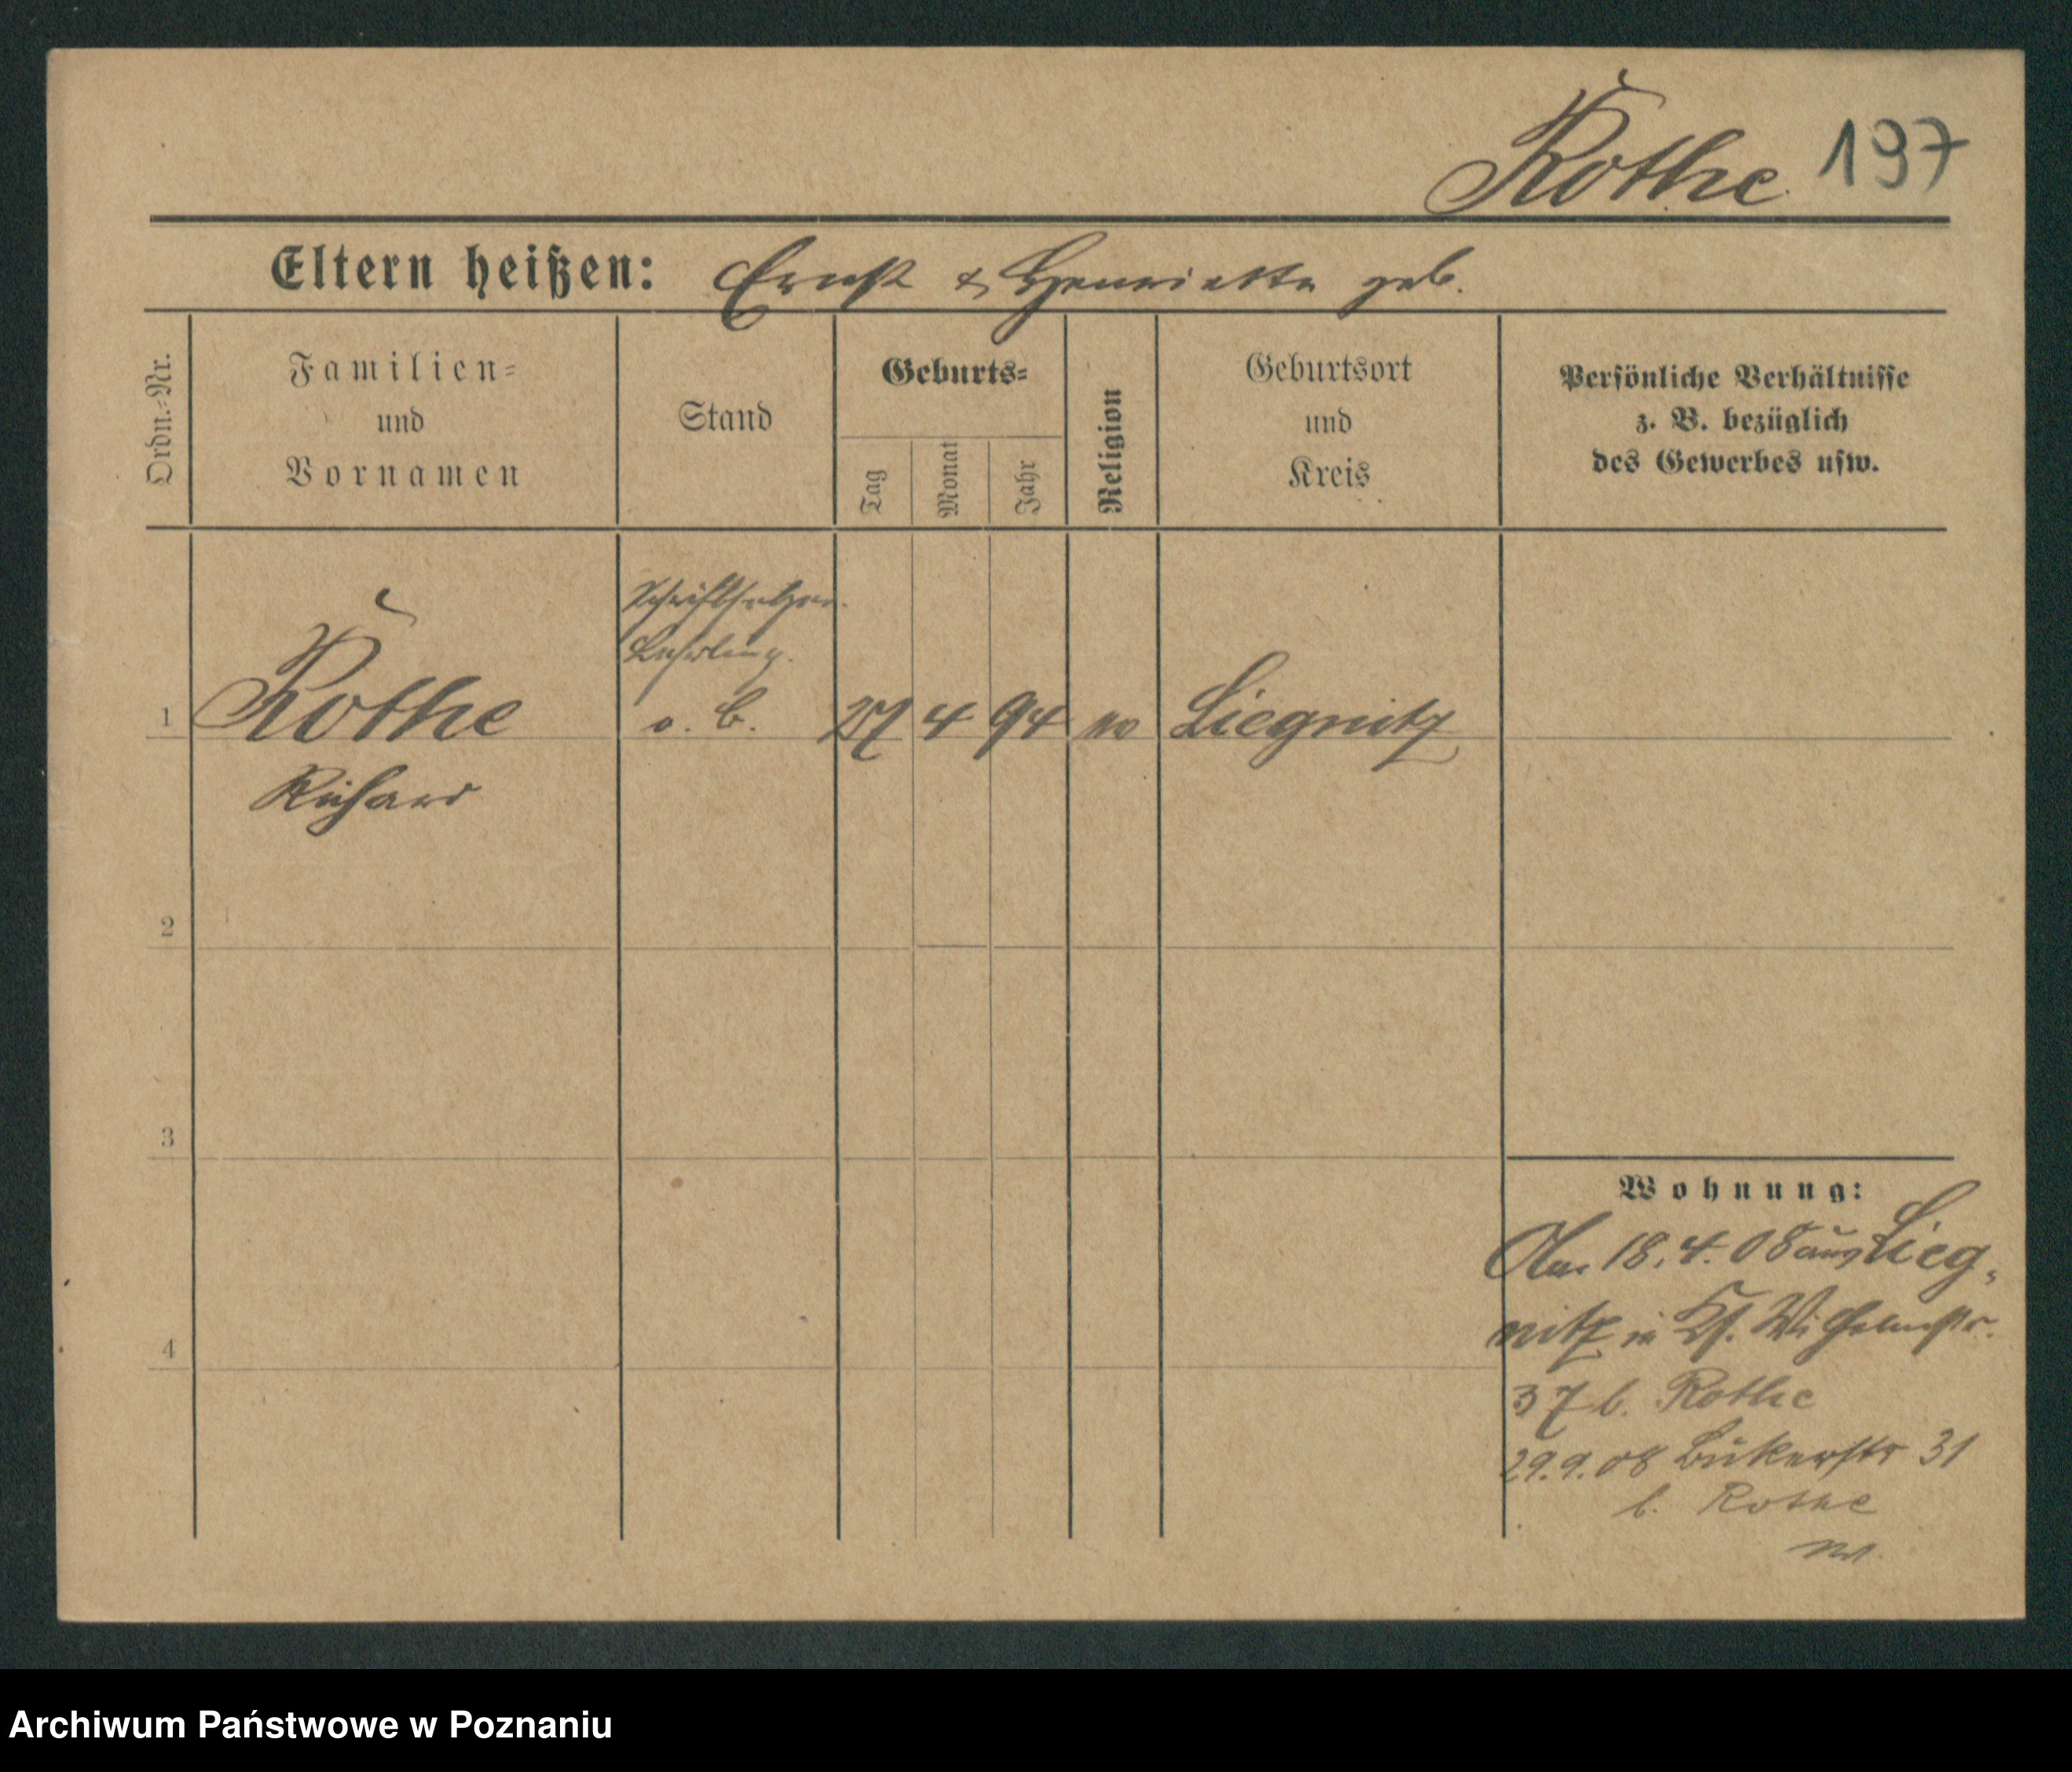 Rothe 197
Eltern heißen: Ernst & Henriette geb.
Ordn.-Nr.
Familien=
und
Vornamen
Stand
Geburts=
Tag
Monat
Jahr
Religion
Geburtsort
und
Kreis
Persönliche Verhältnisse
z. B. bezüglich
des Gewerbes usw.
Schriftsetzer-
Lehrling.
1 Rothe 27 4 94 Liegnitz
Richard
2
3
4
Wohnung:
Am 18.4.08 aus Lieg-
nitz in Wilhelmstr.
37 b. Rothe
29.9.08 Bukerstr 31
b. Rothe
Archiwum Państwowe w Poznaniu